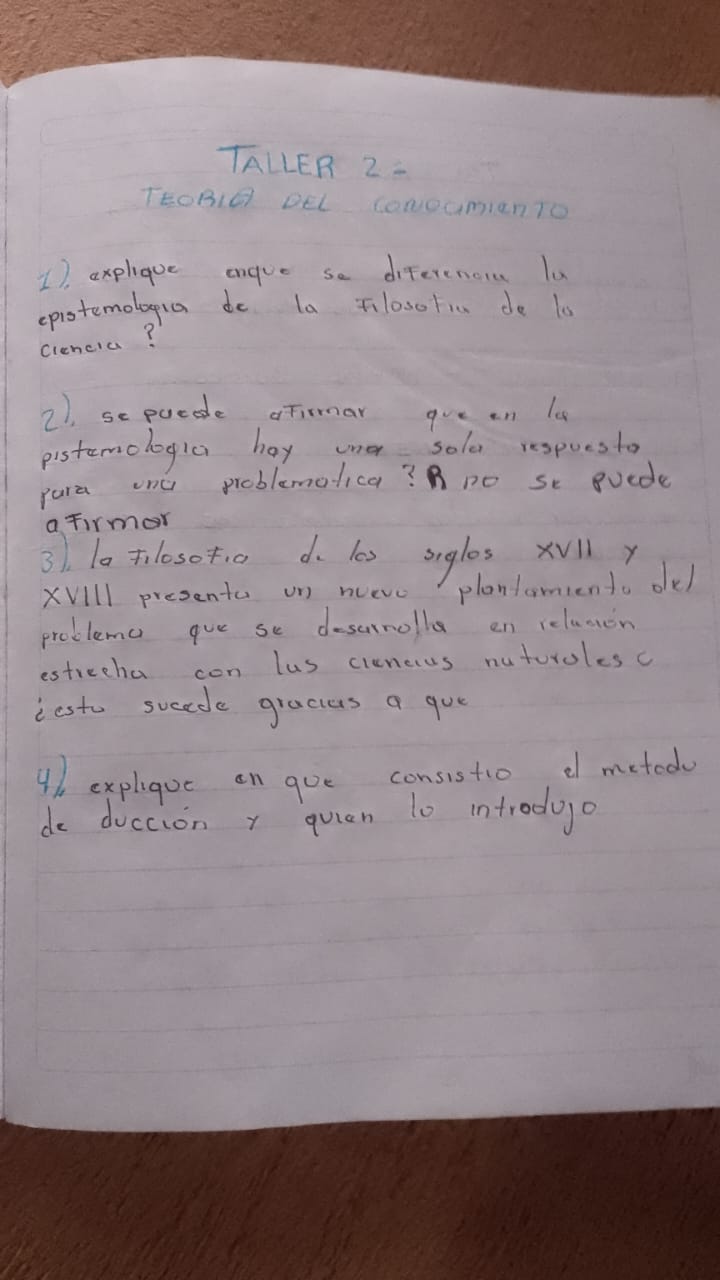 TALLER 2 -
TEORIA DEL CONOCIMIENTO
1). explique enque se diferencia la
epistemologia de la Filosofia de la
ciencia?
2). se puede afirmar que en la
pistemologia hay una sola respuesta
para una problematica? R no se puede
afirmar
3). la Filosofia de los siglos XVII y
XVIII presenta un nuevo plantamiento del
problema que se desarrolla en relación
estrecha con las ciencias naturales c
¿esto sucede gracias a que
4). explique en que consistio el metodo
de ducción y quien lo introdujo